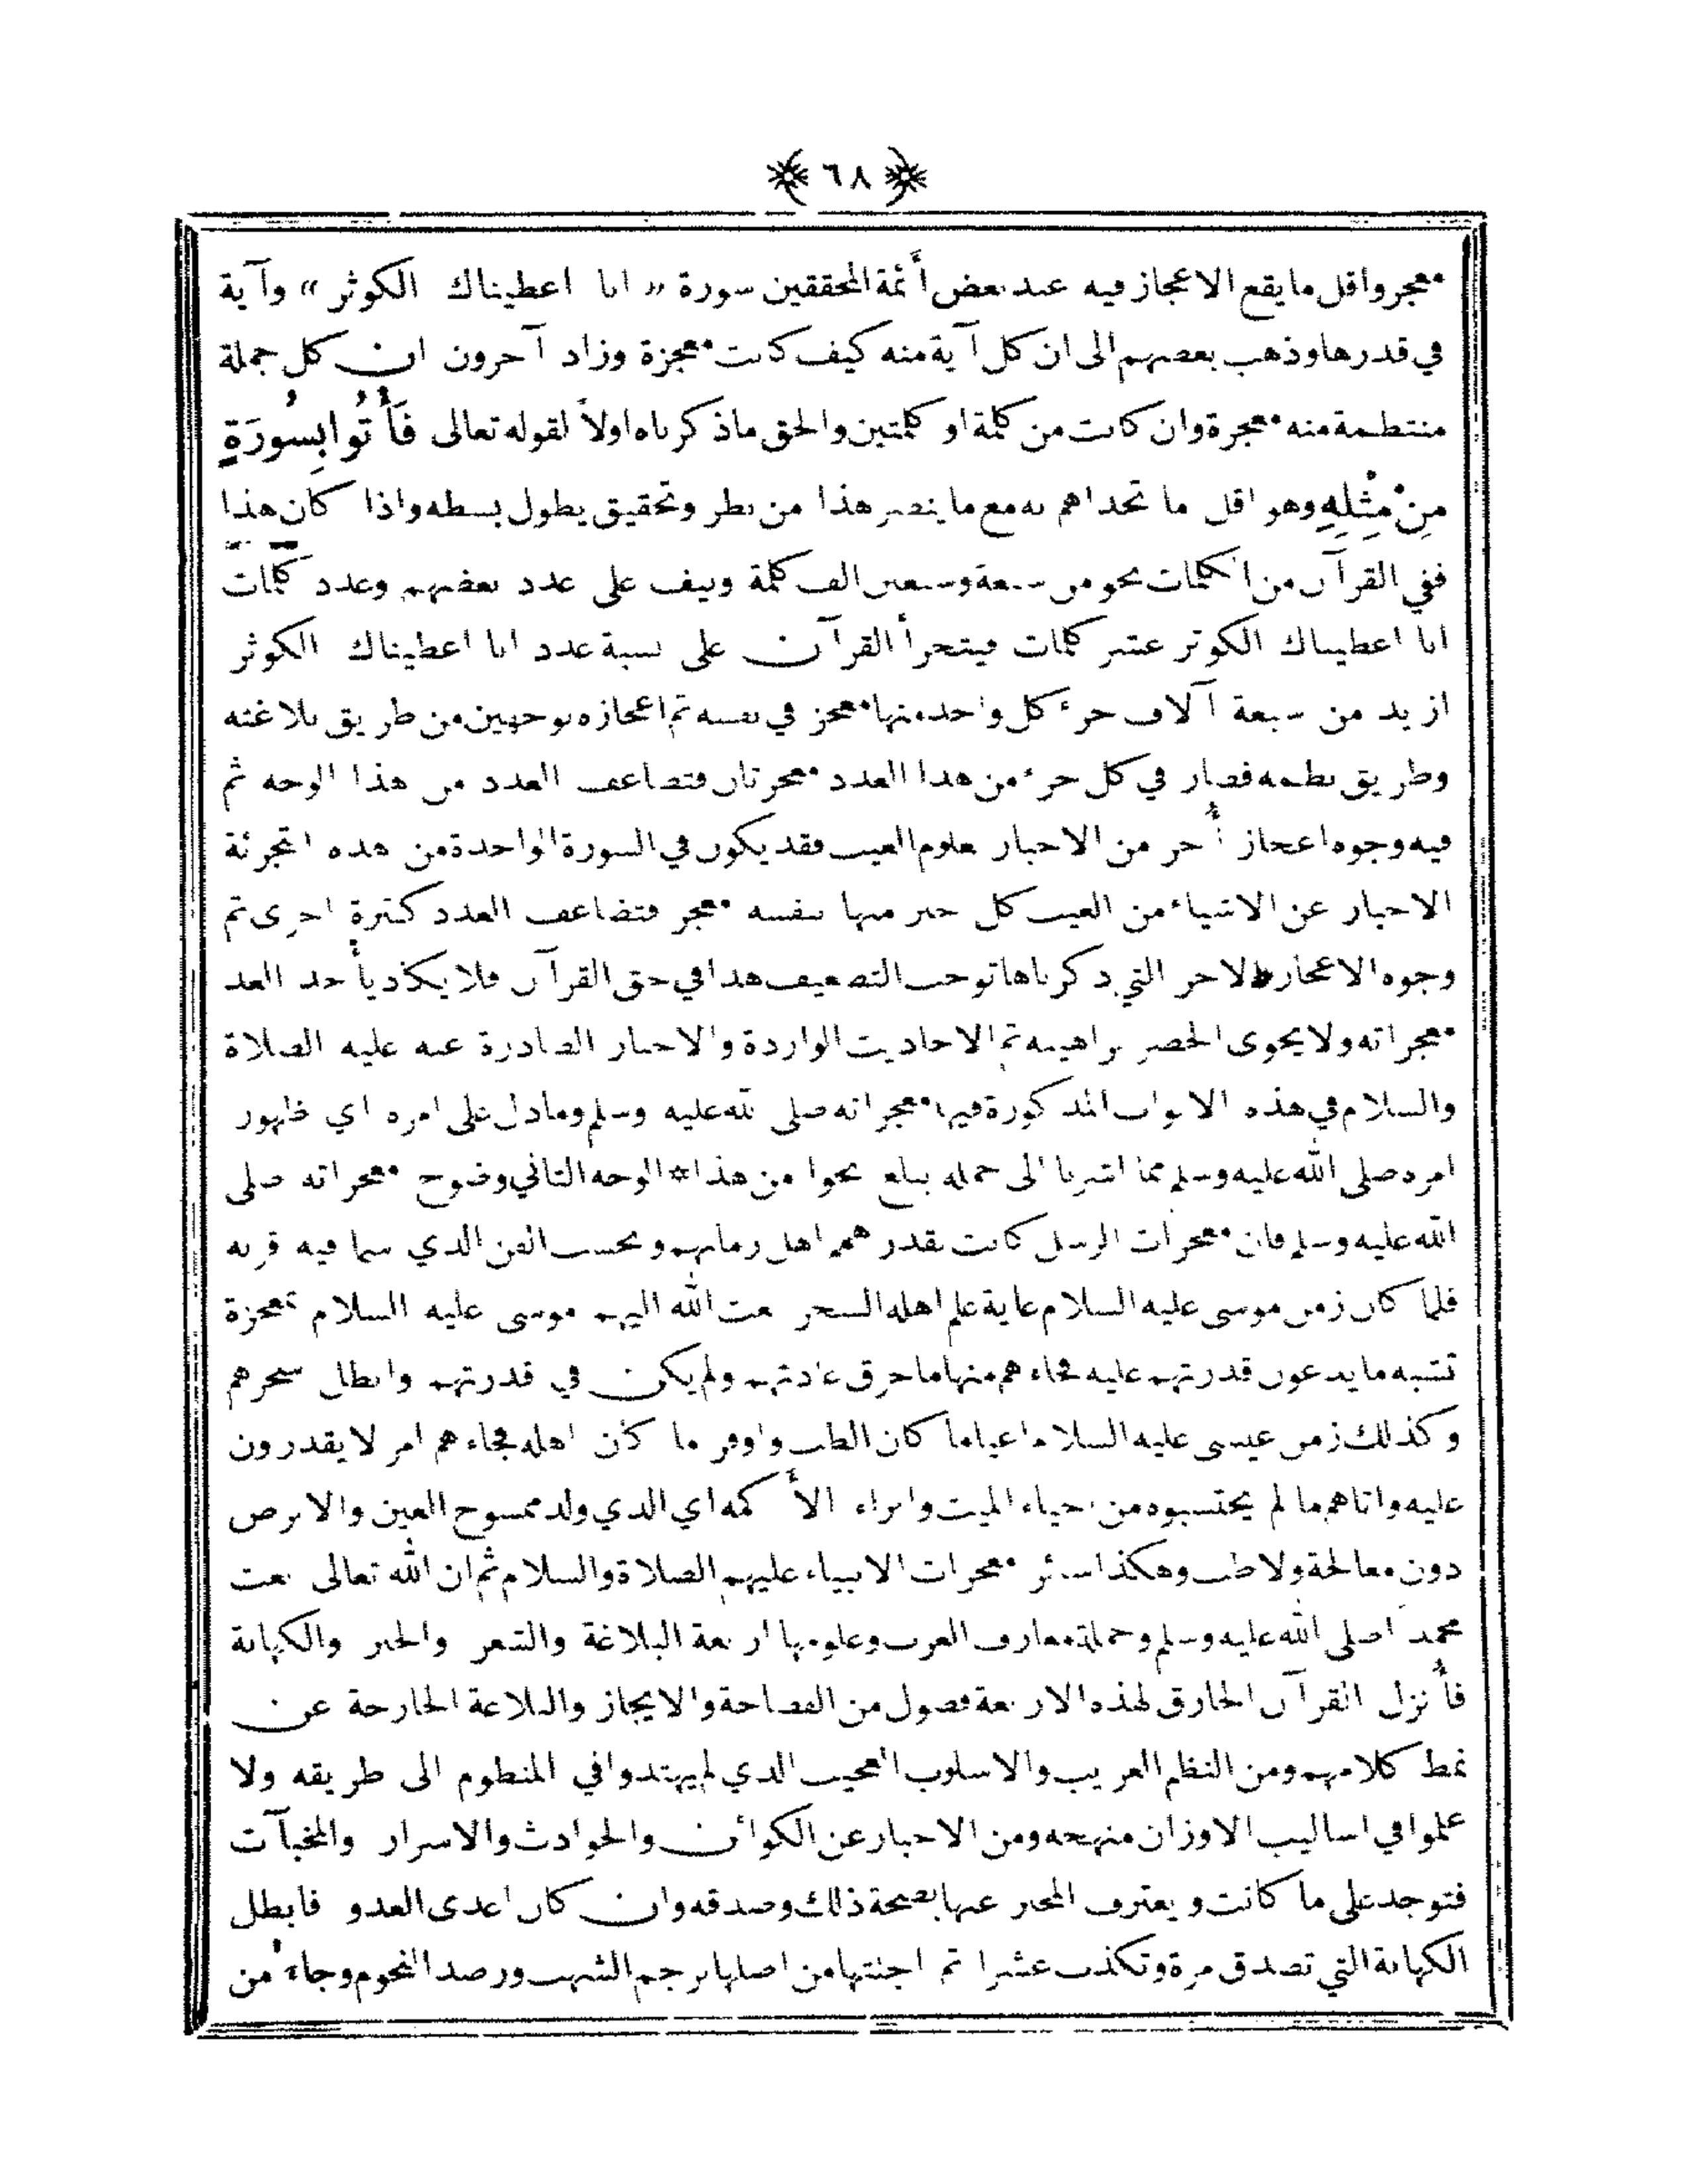 ٦٨
معجز واقل ما يقع الاعجاز فيه عند بعض أئمة المحققين سورة « انا اعطيناك الكوثر » وآية
في قدرها وذهب بعضهم الى ان كل آية منه كيف كانت معجزة وزاد آخرون ان كل جملة
منتظمة منه معجزة وان كانت من كلمة او كلمتين والحق ماذكرناه اولاً لقوله تعالى فَأْتُوا بِسُورَةٍ
مِنْ مِثْلِهِ وهو اقل ما تحداهم به مع ما ينصر هذا من نظر وتحقيق يطول بسطه واذا كان هذا
ففي القرآن من الكلمات نحو من سبعة وسبعين الف كلمة ونيف على عدد بعضهم وعدد كلمات
انا اعطيناك الكوثر عشر كلمات فيتجزأ القرآن على نسبة عدد انا اعطيناك الكوثر
ازيد من سبعة آلاف جزء كل واحد منها معجز في نفسه ثم اعجازه بوجهين من طريق بلاغته
وطريق نظمه فصار في كل جزء من هذا العدد معجزتان فتضاعف العدد من هذا الوجه ثم
فيه وجوه اعجاز أُخر من الاخبار بعلوم الغيب فقد يكون في السورة الواحدة من هذه التجزئة
الاخبار عن الاشياء من الغيب كل خبر منها بنفسه معجز فتضاعف العدد كثرة اخرى ثم
وجوه الاعجاز الاخر التي ذكرناها توجب التضعيف هذا في حق القرآن فلا يكاد يأخذ العد
معجزاته ولا يحوي الحصر براهينه ثم الاحاديث الواردة والاخبار الصادرة عنه عليه الصلاة
والسلام في هذه الابواب المذكورة فيها معجزاته صلى الله عليه وسلم ومادل على امره اي ظهور
امره صلى الله عليه وسلم مما اشرنا الى جمله يبلغ نحوا من هذا * الوجه الثاني وضوح معجزاته صلى
الله عليه وسلم فان معجزات الرسل كانت بقدر همم اهل زمانهم وبحسب الفن الذي سما فيه قرنه
فلما كان زمن موسى عليه السلام غاية علم اهله السحر بعث الله اليهم موسى عليه السلام بمعجزة
تشبه ما يدعون قدرتهم عليه فجاءهم منها ما خرق عادتهم ولم يكن في قدرتهم وابطل سحرهم
وكذلك زمن عيسى عليه السلام اغيا ما كان الطب واوفر ما كان اهله فجاءهم امر لا يقدرون
عليه واتاهم ما لم يحتسبوه من احياء الميت وابراء الأكمه اي الذي ولد ممسوح العين والابرص
دون معالجة ولا طب وهكذا سائر معجزات الانبياء عليهم الصلاة والسلام ثم ان الله تعالى بعث
محمدا صلى الله عليه وسلم وجملة معارف العرب وعلومها اربعة البلاغة والشعر والخبر والكهانة
فأُنزل القرآن الخارق لهذه الاربعة فصول من الفصاحة والايجاز والبلاغة الخارجة عن
نمط كلامهم ومن النظم الغريب والاسلوب العجيب الذي لم يهتدوا في المنظوم الى طريقه ولا
علموا في اساليب الاوزان منهجه ومن الاخبار عن الكوائن والحوادث والاسرار والمخبآت
فتوجد على ما كانت ويعترف المخبر عنها بصحة ذلك وصدقه وان كان اعدى العدو فابطل
الكهانة التي تصدق مرة وتكذب عشرا ثم اجتثها من اصلها برجم الشهب ورصد النجوم وجاء من